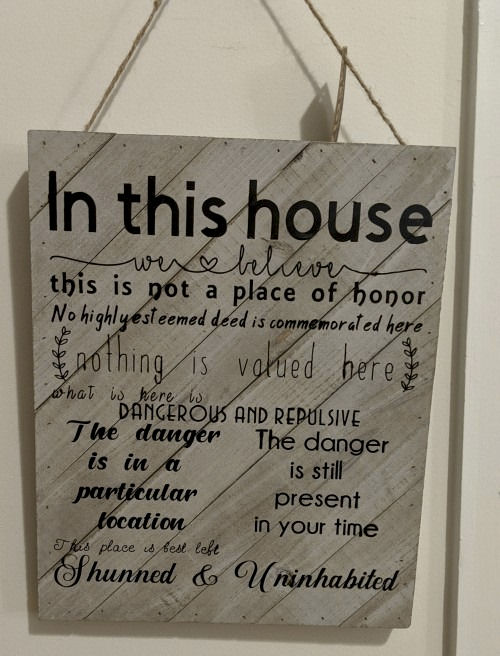 In this house
we believe
this is not a place of honor
No highly esteemed deed is commemorated here
nothing is valued here
what is here is
DANGEROUS AND REPULSIVE
The danger
is in a
particular
location
The danger
is still
present
in your time
This place is best left
Shunned & Uninhabited